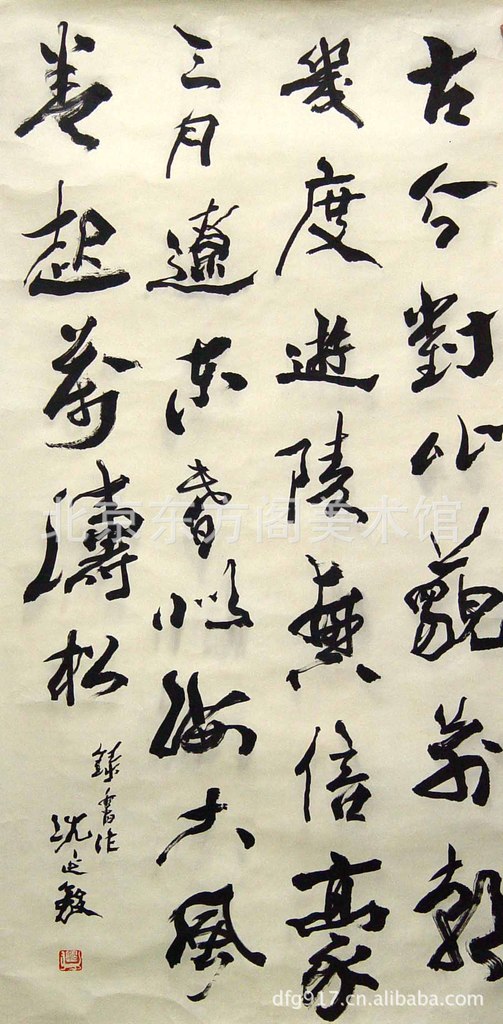 古今對心藐前朝
幾度遊陵信豪
三月遼東春似海大風
卷起萬濤松
錄舊作
沈延毅
北京东方阁美术馆
dfg917.cn.alibaba.com